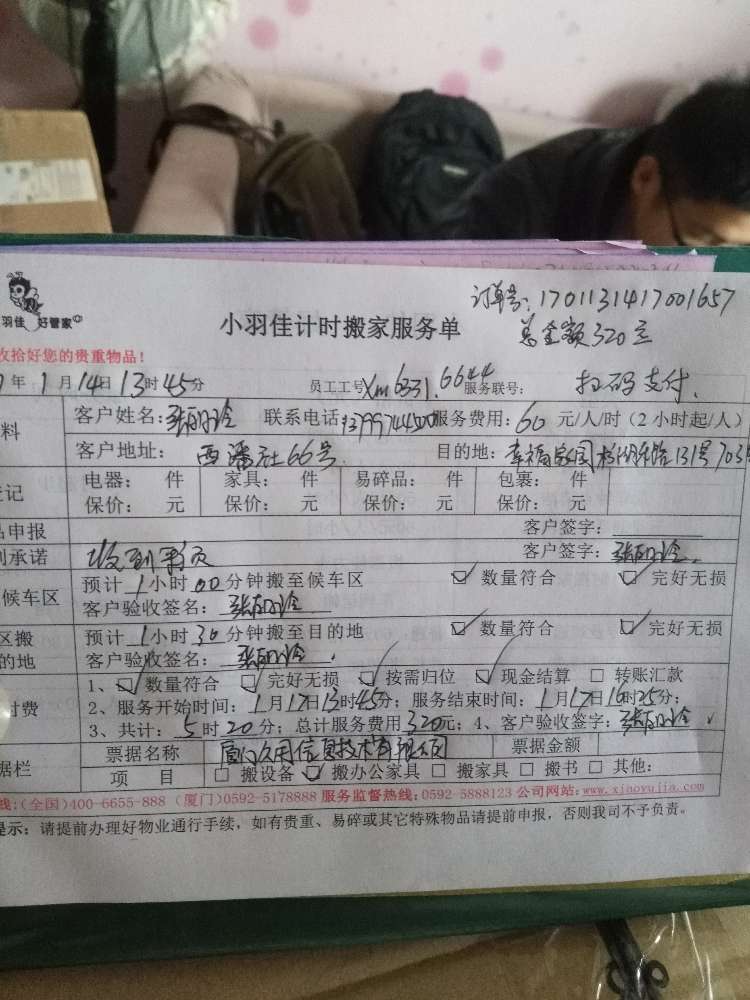 订单号:1701131417001657
羽佳 好管家
小羽佳计时搬家服务单
总金额320元
收拾好您的贵重物品!
年1月14日13时45分 员工工号Xm6331.6644服务联号: 扫码支付.
料 客户姓名: 联系电话: 服务费用:60元/人/时(2小时起/人)
客户地址: 西潘社66号 目的地:幸福家园
登记 电器: 件 家具: 件 易碎品: 件 包裹: 件
保价: 元 保价: 元 保价: 元 保价: 元
品申报 客户签字:
承诺 收到 客户签字:
候车区 预计1小时00分钟搬至候车区 ☑数量符合 ☑完好无损
客户验收签名:
区搬 预计1小时30分钟搬至目的地 ☑数量符合 ☑完好无损
的地 客户验收签名:
付费 1、☑数量符合 ☑完好无损 ☑按需归位 ☑现金结算 □转账汇款
2、服务开始时间:1月17日13时45分;服务结束时间:1月17日16时25分;
3、共计:5时20分;总计服务费用320元;4、客户验收签字:
据栏 票据名称 票据金额
项 目 □搬设备 ☑搬办公家具 □搬家具 □搬书 □其他:
线:(全国)400-6655-888 (厦门)0592-5178888 服务监督热线:0592-5888123 公司网站:www.xiaoyujia.com
提示:请提前办理好物业通行手续,如有贵重、易碎或其它特殊物品请提前申报,否则我司不予负责。